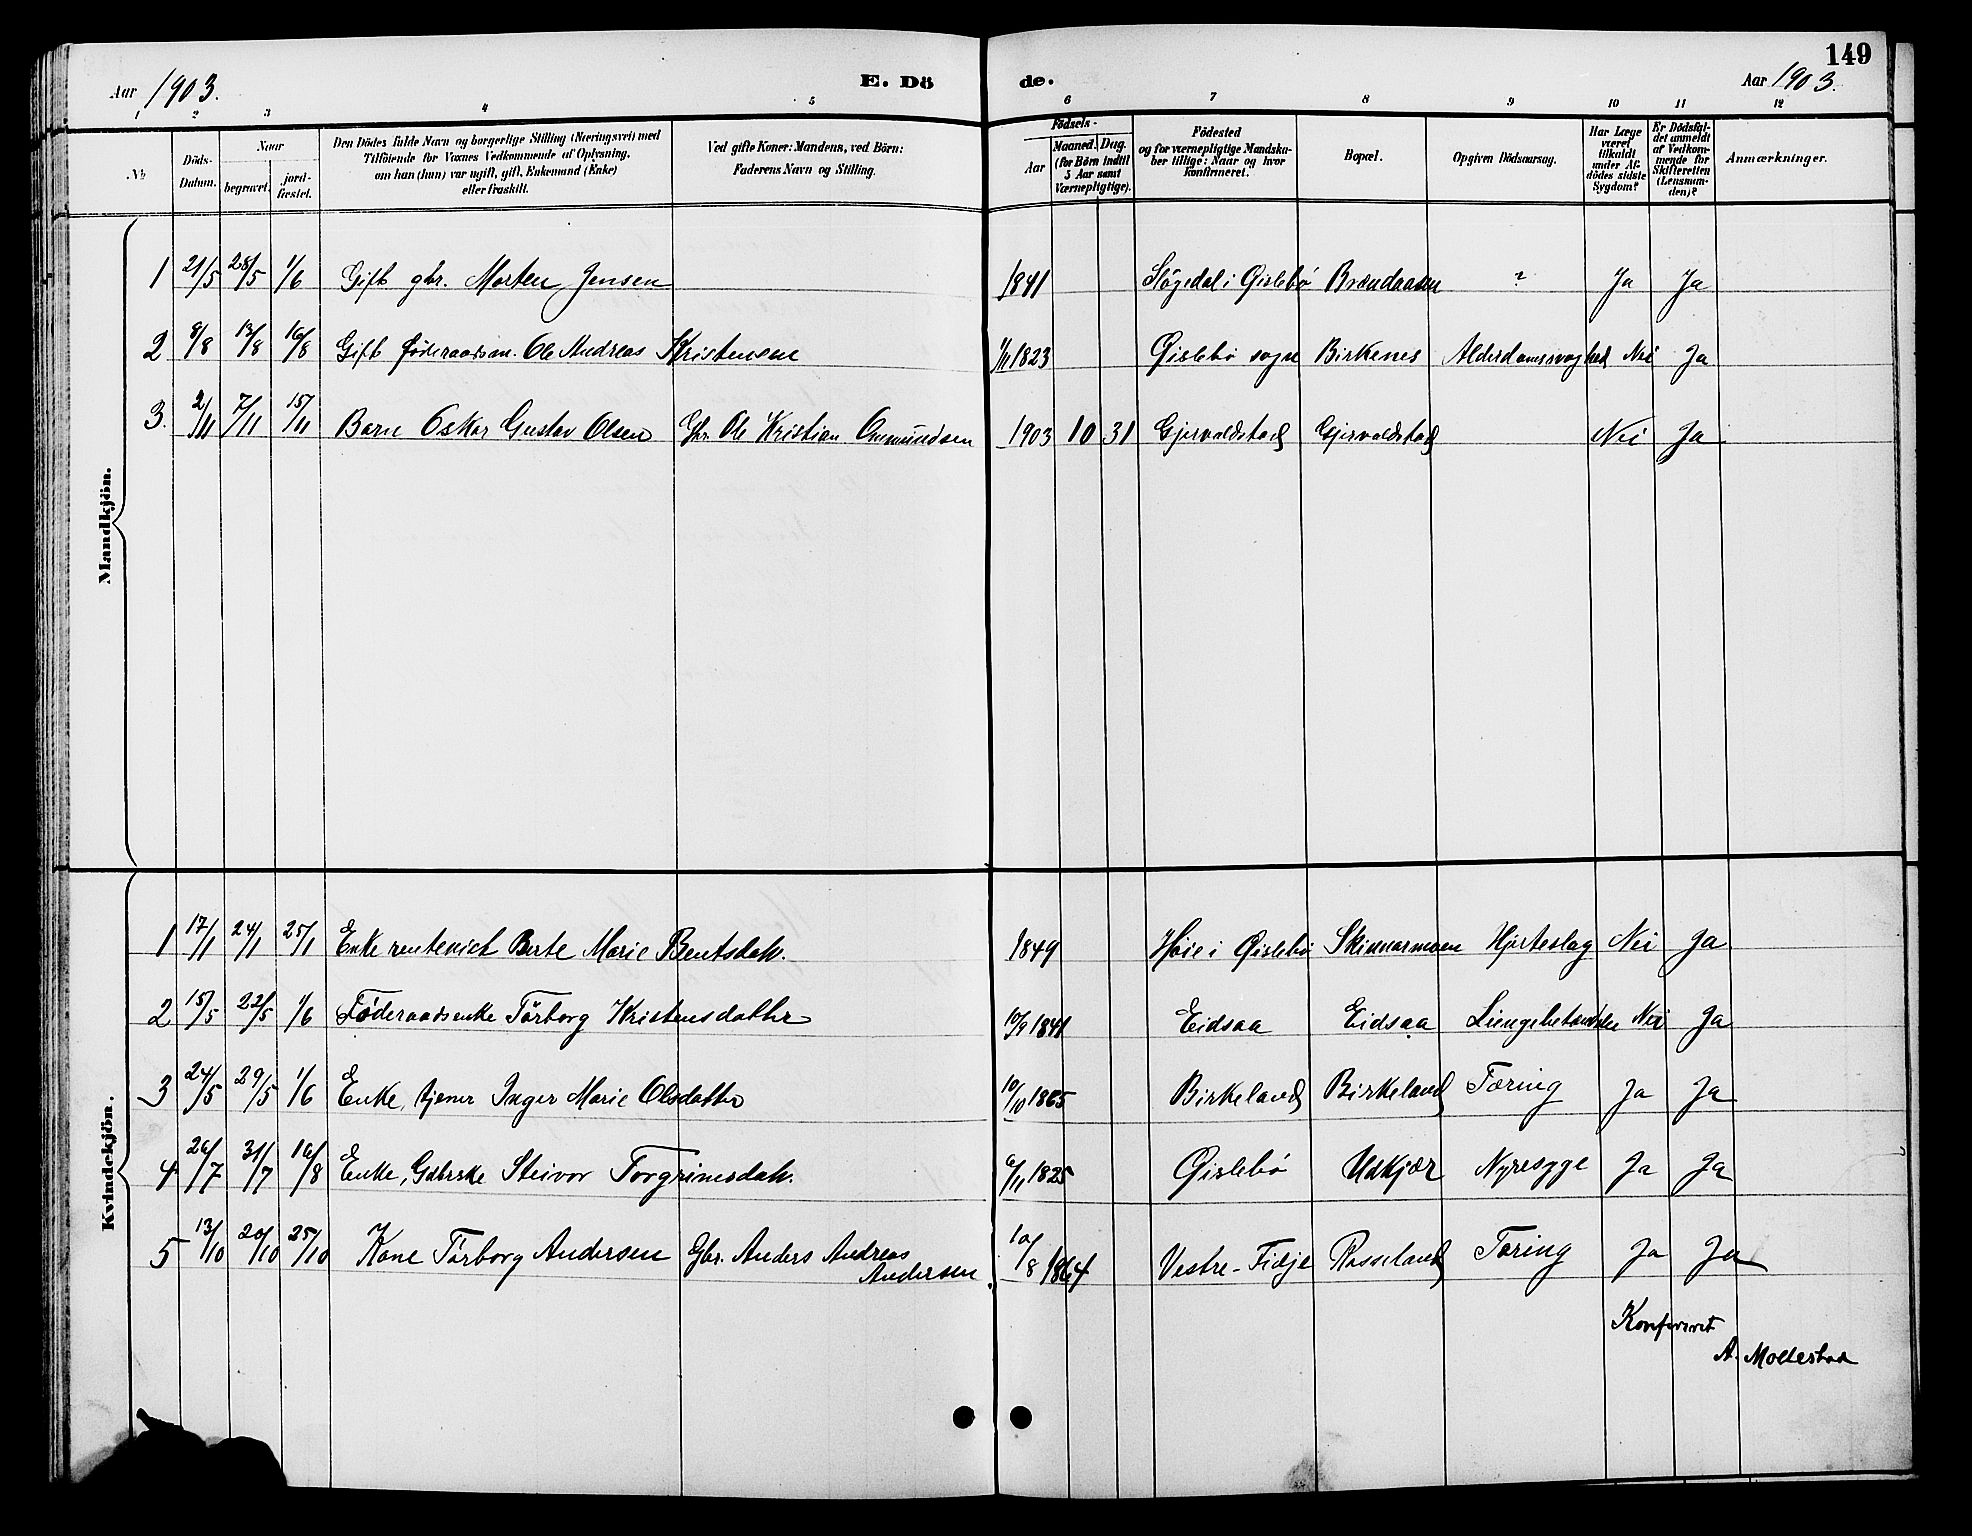 149
Aar 1903. E. Dö de. Aar 1903.
1 2 3 4 5 6 7 8 9 10 11 12
№ Döds-Datum. Naar begravet. jord-fæstet. Den Dödes fulde Navn og borgerlige Stilling (Næringsvei) med Tilföiende for Voxnes Vedkommende af Oplysning, om han (hun) var ugift, gift, Enkemand (Enke) eller fraskilt. Ved gifte Koner: Mandens, ved Börn: Faderens Navn og Stilling. Födsels- Aar Maaned. Dag. (for Börn indtil 5 Aar samt Værnepligtige). Födested og for værnepligtige Mandskaber tillige: Naar og hvor Konfirmeret. Bopæl. Opgiven Dödsaarsag. Har Læge været tilkaldt under Afdödes sidste Sygdom? Er Dödsfaldet anmeldt af Vedkommende for Skifteretten (Lensmanden)? Anmærkninger.
Mandkjön.
1 21/5 28/5 1/6 Gift gbr. Morten Jensen 1841 Stögedal i Øislebø Brændaasen ? Ja Ja
2 8/8 13/8 16/8 Gift føderaadsm. Ole Andreas Kristensen 1/11 1823 Øislebø sogn Birkenes Alderdomssvaghed Nei Ja
3. 2/11 7/11 15/11 Barn Oskar Gustav Olsen Gbr. Ole Kristian Ommundsen 1903 10 31 Gjervoldstad Gjervoldstad Nei Ja
Kvindekjön.
1 17/1 24/1 25/1 Enke rentenict Berte Marie Bentsdatt. 1849 Høie i Øislebø Skinnarmoen Hjerteslag Nei Ja
2 15/5 22/5 1/6 Føderaadsenke Tørborg Kristensdatter 10/9 1841 Eidsaa Eidsaa Lungebetændelse Nei Ja
3 24/5 29/5 1/6 Enke, tjener Inger Marie Olsdatter 10/10 1865 Birkeland Birkeland Tæring Ja Ja
4 26/7 31/7 16/8 Enke, Gdbrske Steivor Torgrimsdatt. 6/11 1825 Øislebø Udkjær Nyresyge Ja Ja
5 13/10 20/10 25/10 Kone Tørborg Andersen Gbr. Anders Andreas Andersen 10/8 1864 Vestre-Fidje Rosseland Tæring Ja Ja
Konfereret
A. Mollestad